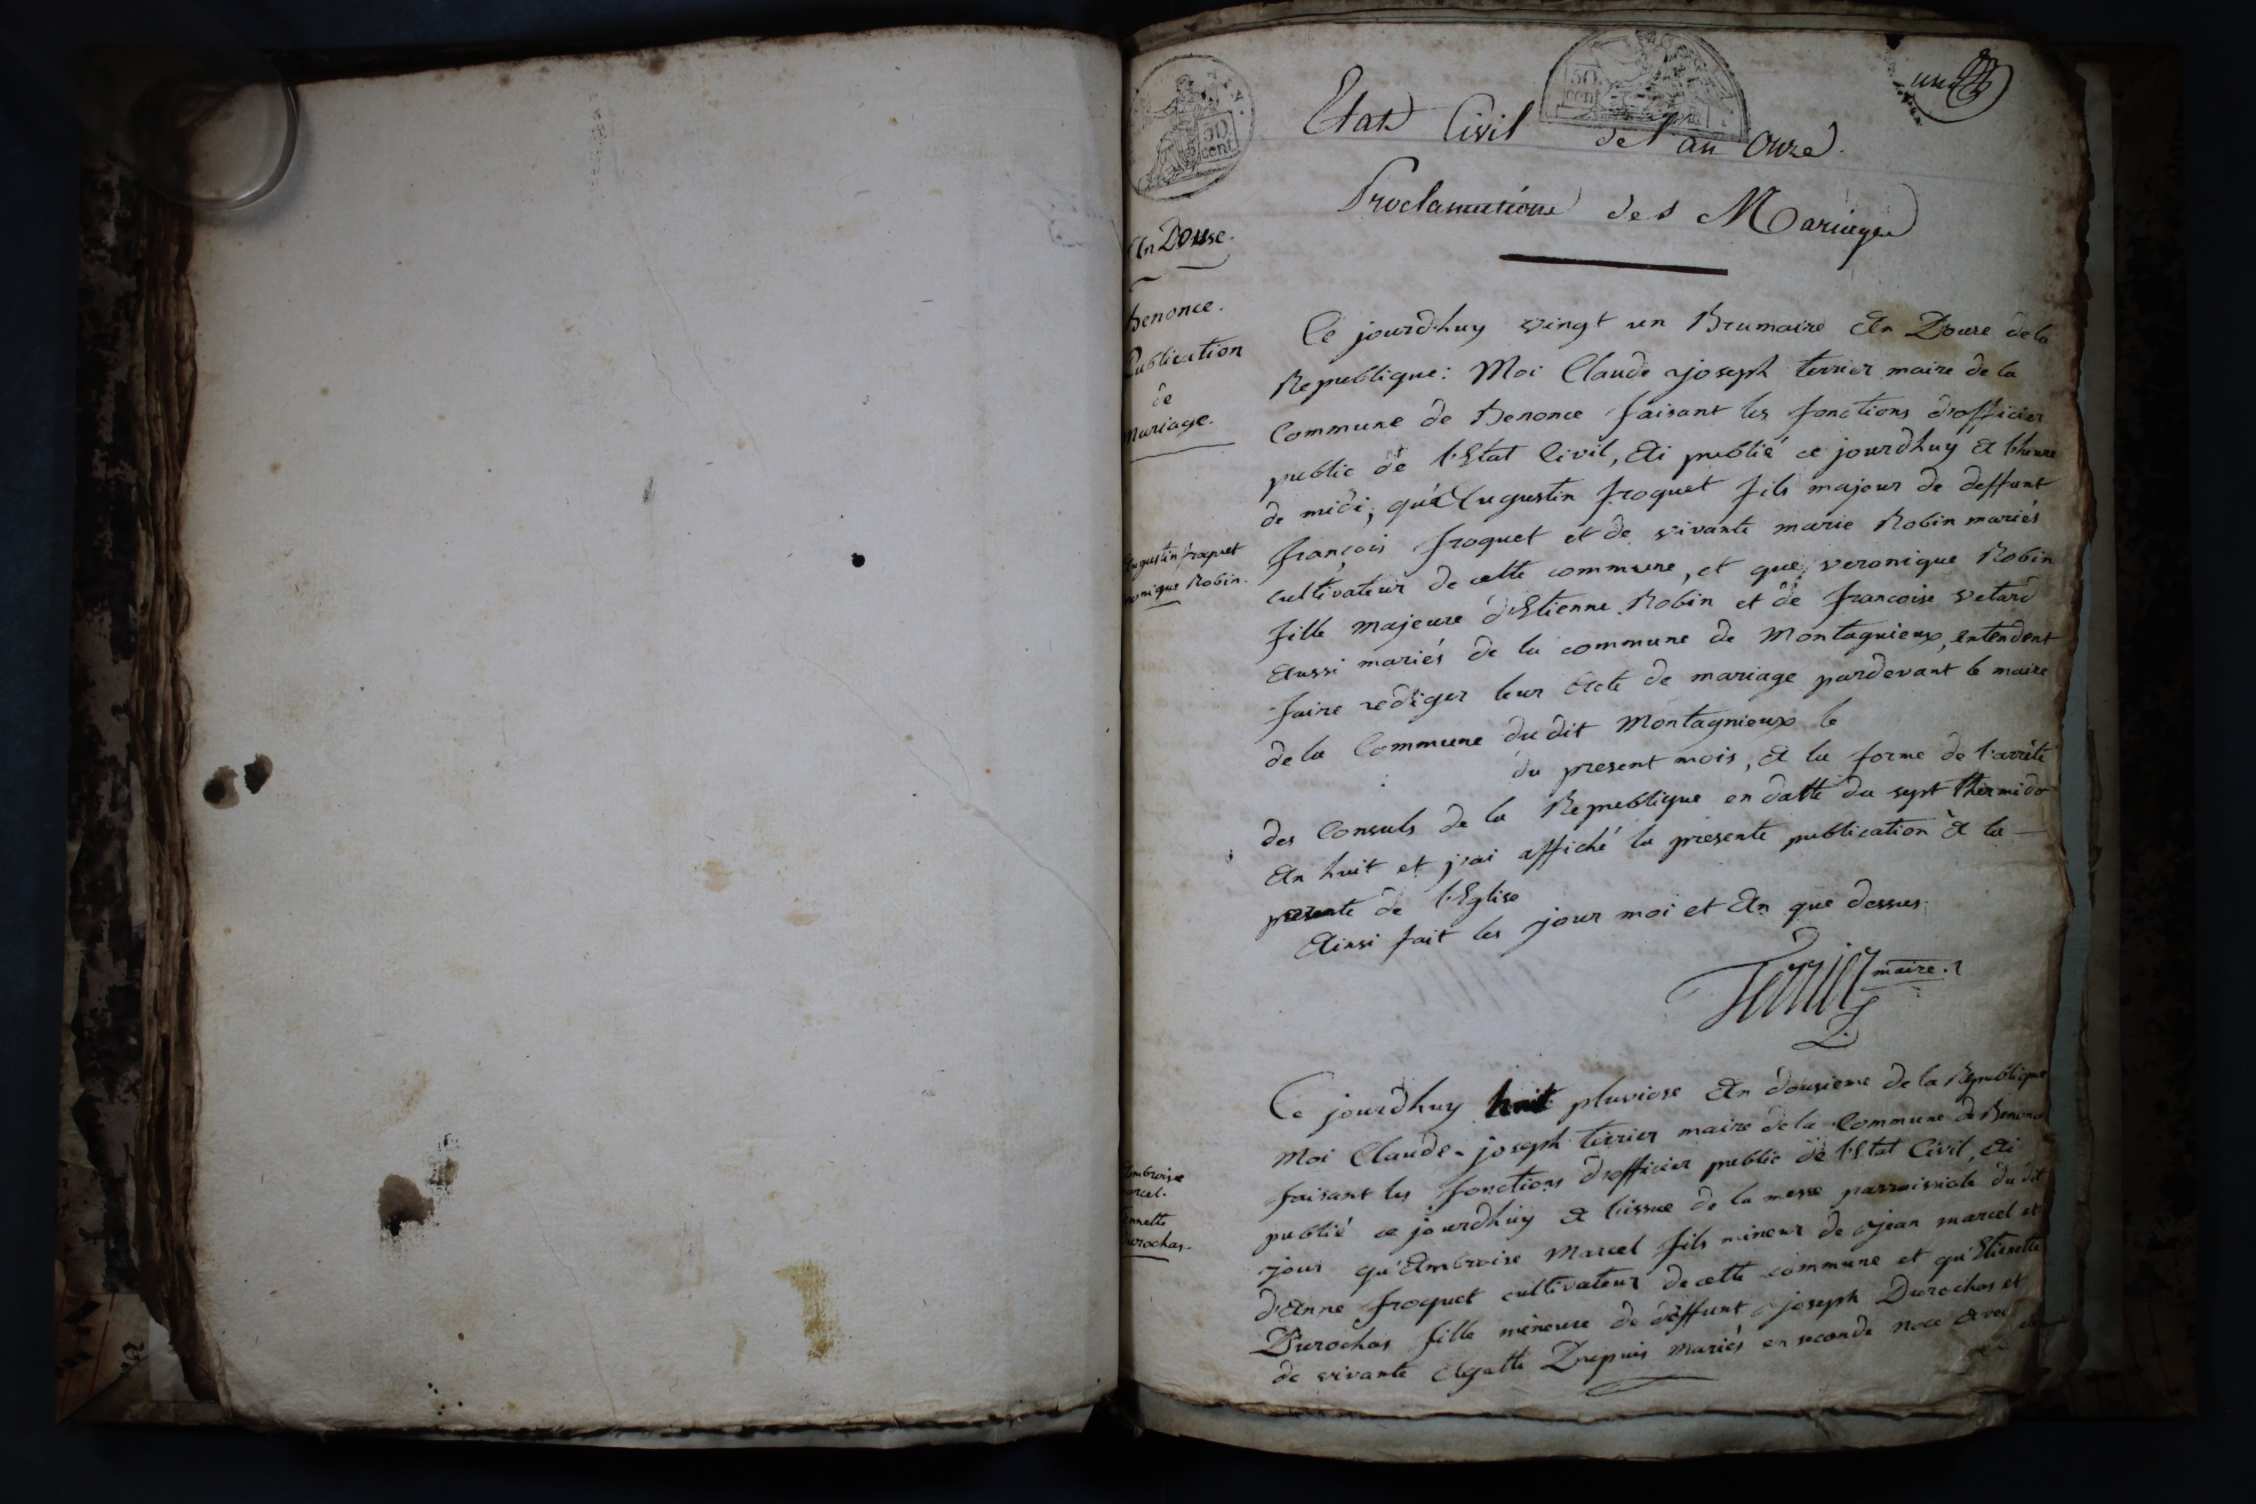 un
50
cent
50
cent
Etat Civil de l'an Onze.
Proclamations des Mariages
An Douse.
Benonce.
Publication
de
Mariage.
Ce jourd'huy vingt un Brumaire An Douze de la
Republique: Moi Claude joseph terrier maire de la
Commune de Benonce faisant les fonctions d'officier
public de l'Etat Civil, Ai publié ce jourdhuy A l'heure
de midi; qu'Augustin froquet fils majeur de deffunt
françois froquet et de vivante marie Robin mariés
cultivateur de cette commune, et que veronique Robin
fille majeure d'Etienne Robin et de francoise vetard
Aussi mariés de la commune de Montagnieux, entendent
faire rediger leur Acte de mariage pardevant le maire
de la Commune du dit Montagnieux le
du present mois, A la forme de l'arrêté
des Consuls de la Republique en datte du sept thermidor
An huit et j'ai affiché la presente publication A la
porte de l'Eglise
Ainsi fait les jour moi et An que dessus.
Augustin froquet
veronique Robin.
Terrier maire.
Ce jourdhuy huit pluviose An dousieme de la Republique
Moi Claude-joseph terrier maire de la Commune de Benonce
faisant les fonctions d'officier public de l'Etat Civil, Ai
publié ce jourdhuy A l'issue de la messe parroissiale du dit
jour qu'Ambroise Marcel fils mineur de jean marcel et
d'Anne froquet cultivateur de cette commune et qu'Etienette
Durochas fille mineure de deffunt joseph Durochas et
de vivante Agatte Dupuis mariés en seconde noce avec
Ambroise
marcel.
Durochas.